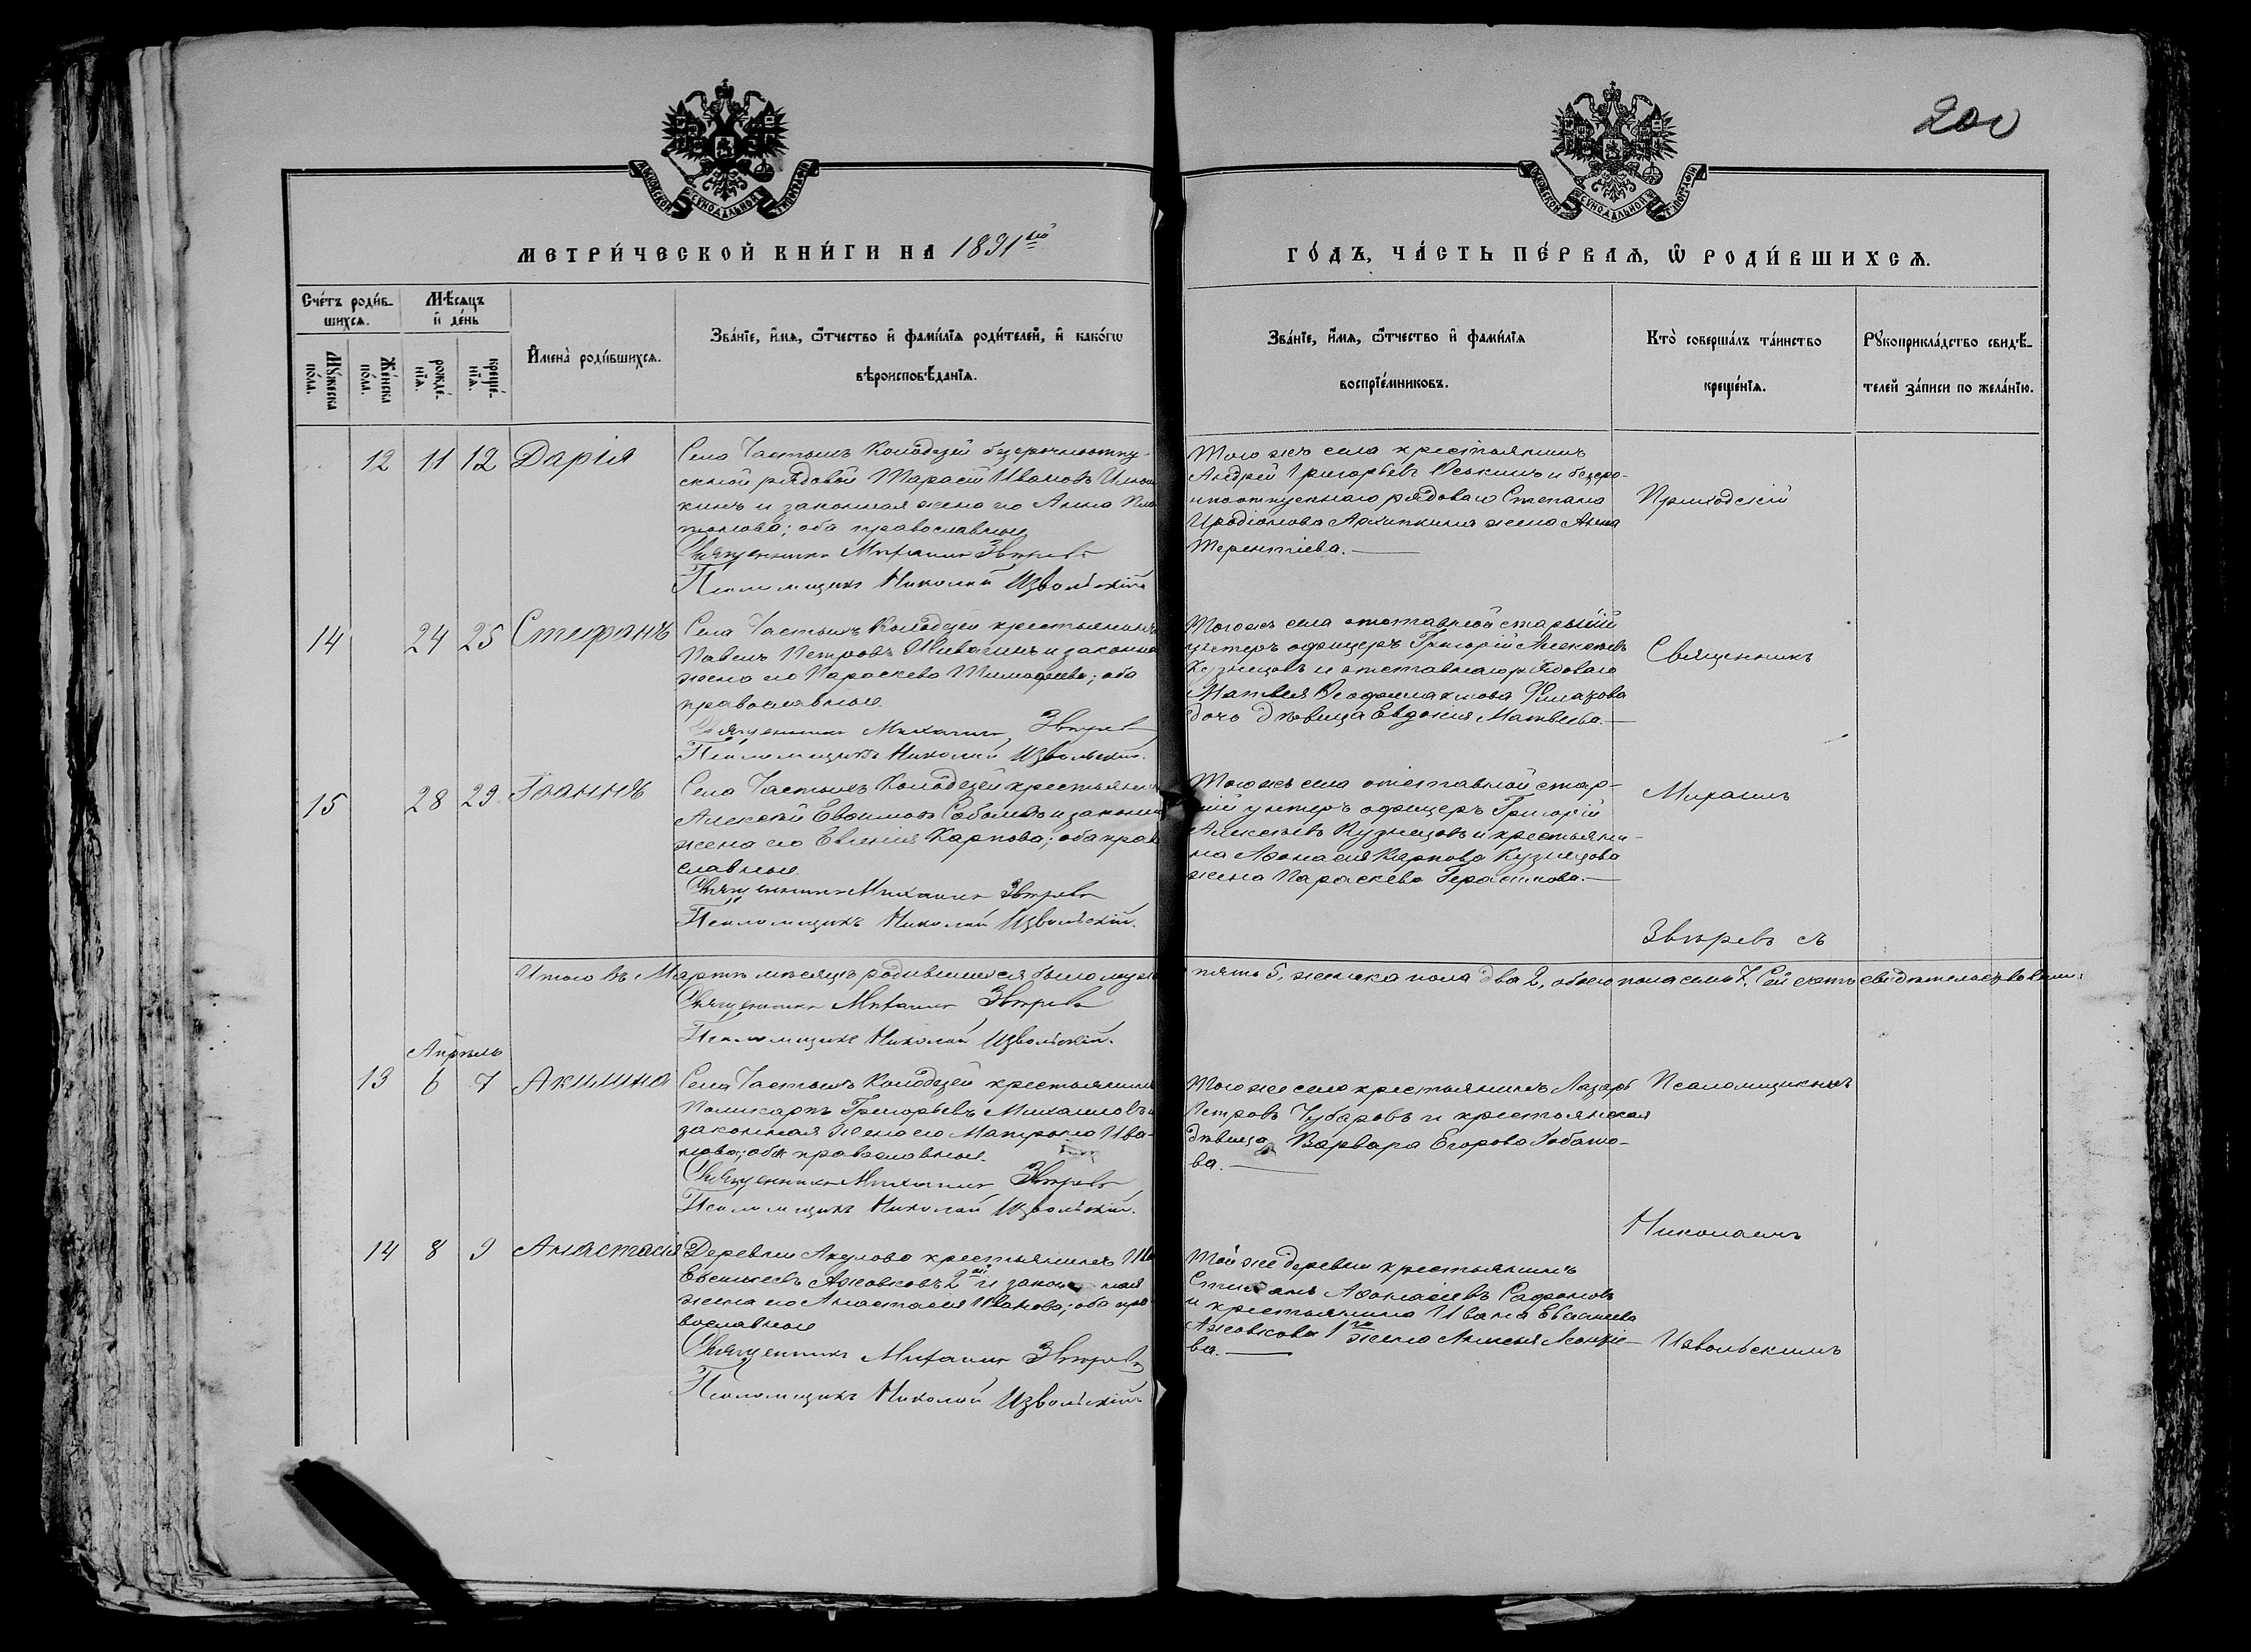 200
МОСКОВСКОЙ СѴНОДАЛЬНОЙ ТѴПОГРАФІИ
МОСКОВСКОЙ СѴНОДАЛЬНОЙ ТѴПОГРАФІИ
МЕТРИ́ЧЕСКОЙ КНИ́ГИ НА 1891 вый
ГО́ДЪ, ЧА́СТЬ ПЕ́РВАѦ, Ѽ РОДИ́ВШИХСѦ.
Сче́тъ роди́в-
шихсѧ.
Мѣ́сѧцъ
и҆ де́нь
Мꙋ́жеска
по́ла.
Же́нска
по́ла.
рожде́-
нїѧ.
креще́-
нїѧ.
И҆мена̀ роди́вшихсѧ.
Зва́нїе, и҆́мѧ, ѻ҆́тчество и҆ фамилїѧ роди́телей, и҆ како́гѡ
вѣроисповѣ́данїѧ.
Зва́нїе, и҆́мѧ, ѻ҆́тчество и҆ фамилїѧ
воспрїе́мниковъ.
Кто̀ соверша́лъ та́инство
креще́нїѧ.
Рꙋкоприкла́дство свидѣ́-
телей за́писи по жела́нїю.
12 11 12 Дарія
Села Частыхъ Колодезей безсрочноотпу-
скной рядовой Тарасій Ивановъ
кинъ и законная жена его Анна
оба православные
Священникъ Михаилъ Звѣревъ
Псаломщикъ Николай Извольскій
Того же села крестьянинъ
Андрей Григорьевъ Оськинъ и безсро-
чноотпускнаго рядоваго Стефана
Иродіонова Архипкина жена Анна
Терентіева.
Приходскій
14 24 25 Стефанъ
Села Частыхъ Колодезей крестьянинъ
Павелъ Петровъ и законная
жена его Параскева Тимофеева; оба
православные.
Священникъ Михаилъ Звѣревъ
Псаломщикъ Николай Извольскій.
Того же села отставной старшій
унтеръ офицеръ Григорій Алексѣевъ
Кузнецовъ и отставнаго рядоваго
Матвея Феофилактова
дочь дѣвица Евдокія Матвеева.
Священникъ
15 28 29 Іоаннъ
Села Частыхъ Колодезей крестьянинъ
Алексѣй Евфимовъ и законная
жена его Евгенія Карпова; оба право
славные.
Священникъ Михаилъ Звѣревъ
Псаломщикъ Николай Извольскій.
Того же села отставной стар-
шій унтеръ офицеръ Григорій
Алексѣевъ Кузнецовъ и крестьяни-
на Афанасія Карпова Кузнецова
жена Параскева Герасимова.
Михаилъ
Звѣревъ съ
Итого въ Мартѣ мѣсяцѣ родившихся было муж
пять 5, женска пола два 2, обоего пола семь 7. Сей счетъ свидѣтельствовали:
Священникъ Михаилъ Звѣревъ
Псаломщикъ Николай Извольскій.
Апрѣль
13 6 7 Акилина
Села Частыхъ Колодезей крестьянинъ
Поликарпъ Григорьевъ Михайловъ и
законная жена его Матрона Ива-
нова; оба православные.
Священникъ Михаилъ Звѣревъ
Псаломщикъ Николай Извольскій.
Того же села крестьянинъ Лазарь
Петровъ Чубаровъ и крестьянская
дѣвица Варвара Егорова
ва.
Псаломщикомъ
Николаемъ
14 8 9 Анастасія
Деревни Акулова крестьянинъ
2ой и законная
жена его Анастасія Иванова; оба пра
вославные
Священникъ Михаилъ Звѣревъ
Псаломщикъ Николай Извольскій
Той же деревни крестьянинъ
Стефанъ Афанасіевъ Сафоновъ
и крестьянина Ивана
1го жена
ва.
Извольскимъ